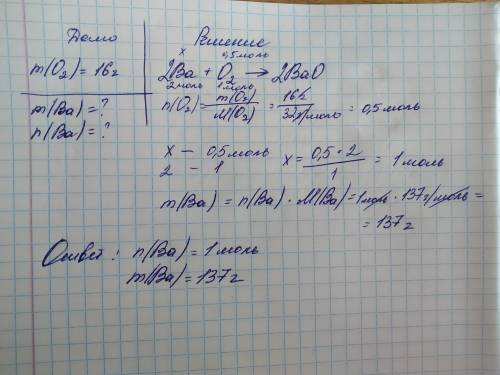 Дано
m(O₂) = 16г
m(Ba) = ?
n(Ba) = ?
Решение
x 0,5 моль
2Ba + O₂ → 2BaO
2 моль 1 моль
n(O₂) = m(O₂)/M(O₂) = 16г/32г/моль = 0,5 моль
x – 0,5 моль x = 0,5 · 2/1 = 1 моль
2 – 1
m(Ba) = n(Ba) · M(Ba) = 1 моль · 137 г/моль =
= 137 г
Ответ: n(Ba) = 1 моль
m(Ba) = 137 г